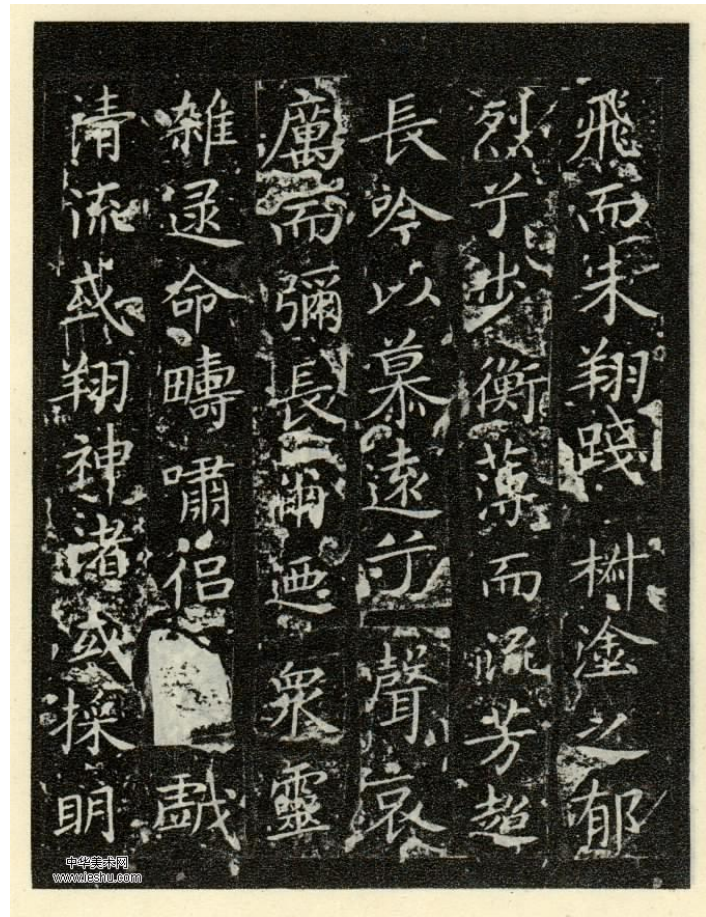 飛而未翔踐椒塗之郁
烈兮步衡薄而流芳超
長吟以慕遠兮聲哀
厲而彌長爾迺眾靈
雜遝命疇嘯侶戲
清流或翔神渚或採明
中华美术网
www.leshu.com